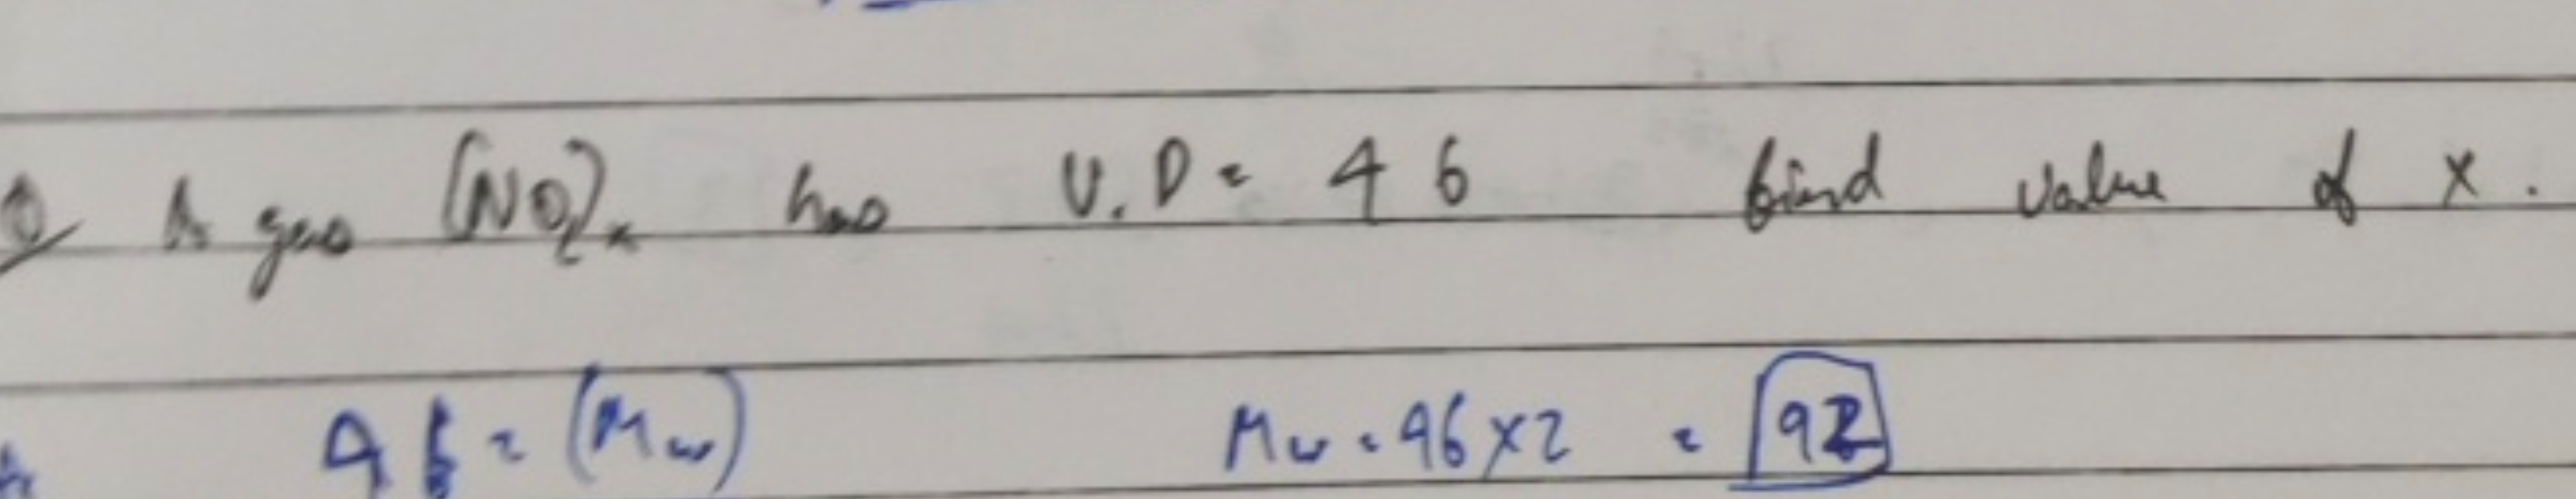 Q A gas (NO2)x has V.D = 46 find value of x.
46 = (Mw) Mw = 46 x 2 = 92